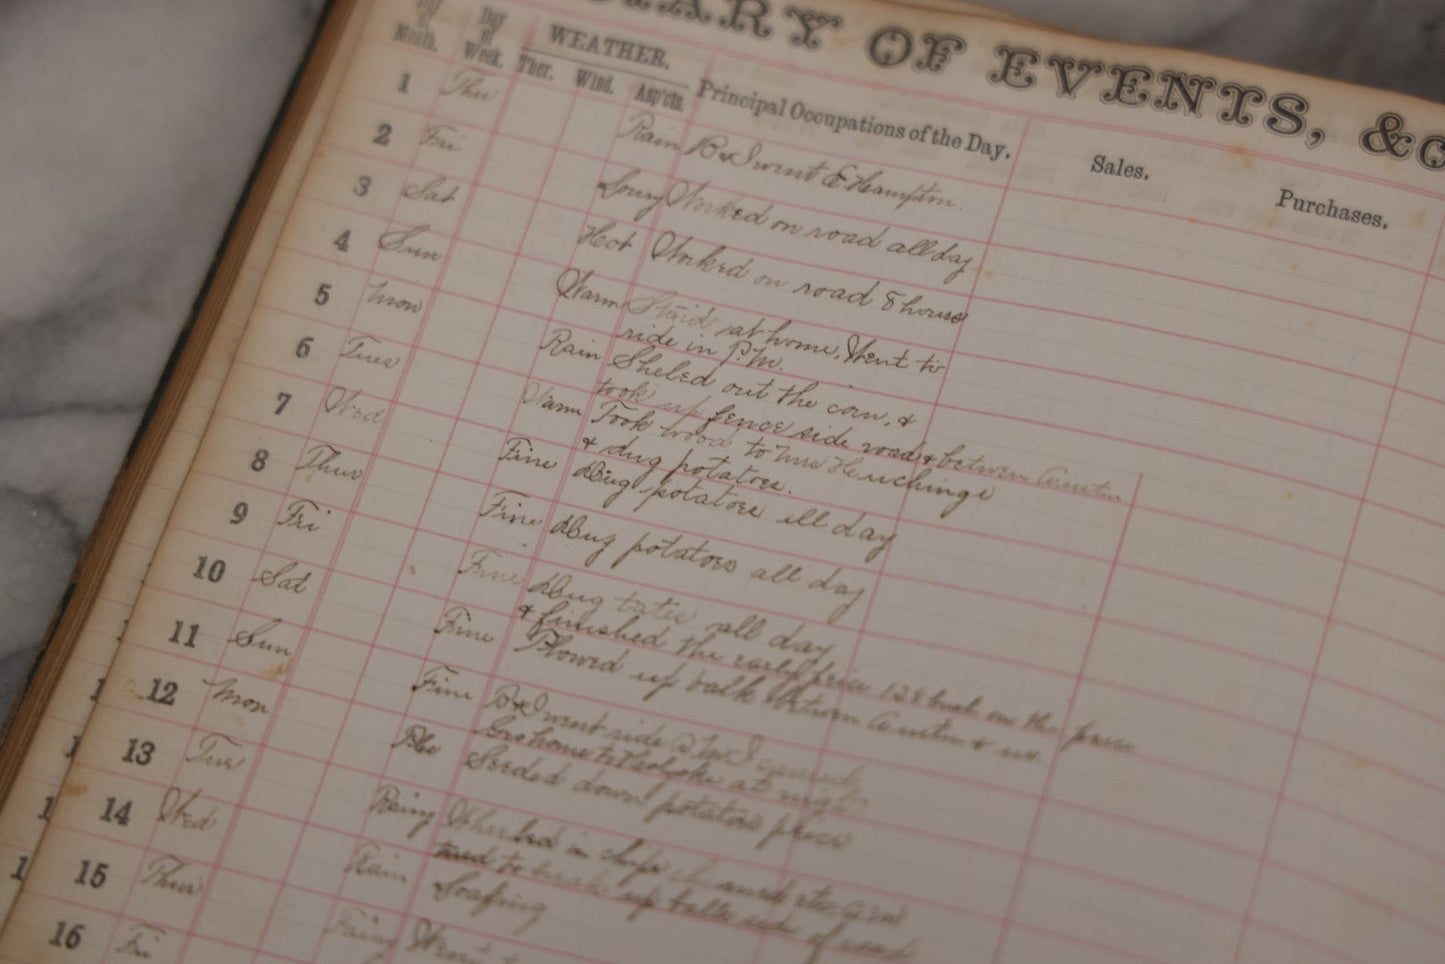 DIARY OF EVENTS, &c
Day of Month.
Day of Week.
WEATHER.
Ther. Wind. Asp'cts.
Principal Occupations of the Day.
Sales.
Purchases.
1 Thu Rain B & I went E Hampton.
2 Fri Worked on road all day
3 Sat Hot Worked on road 8 hours
4 Sun Warm Staid at home. Went to
ride in P.M.
5 Mon Rain Sheled out the corn, &
took up fence side road & between Austin
6 Tues Warm Took wood to Mrs
& dug potatoes.
7 Wed Fine Dug potatoes all day
8 Thur Fine Dug potatoes all day
9 Fri Fine Dug tates all day
& finished the early piece 128 bush on the piece
10 Sat Fine Plowed up balk between Austin & us.
11 Sun Fine B & I went ride P.M. I
home to Holyoke at night
12 Mon Seeded down potatoe piece
13 Tue Rainy in
to up side of road
14 Wed Rain
15 Thur Went
16 Fri